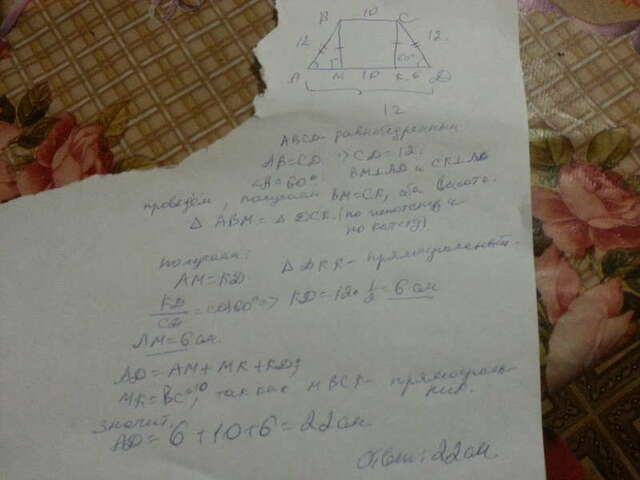 B 10 C
12 12
60°
A M 10 K 6 D
12
ABCD - равнобедренный
AB = CD. => CD = 12.
<A = 60°. BM⊥AD и CK⊥AD
проведём, получили BM = CK, оба высоты.
Δ ABM = Δ DCK (по гипотенузе и
по катету)
получили:
AM = KD Δ DKK - прямоугольный.
KD/CD = cos60° => KD = 12 · 1/2 = 6 см
AM = 6 см.
AD = AM + MK + KD;
MK = BC = 10, так как MBCK - прямоуголь-
ник.
значит,
AD = 6 + 10 + 6 = 22 см.
Ответ: 22 см.